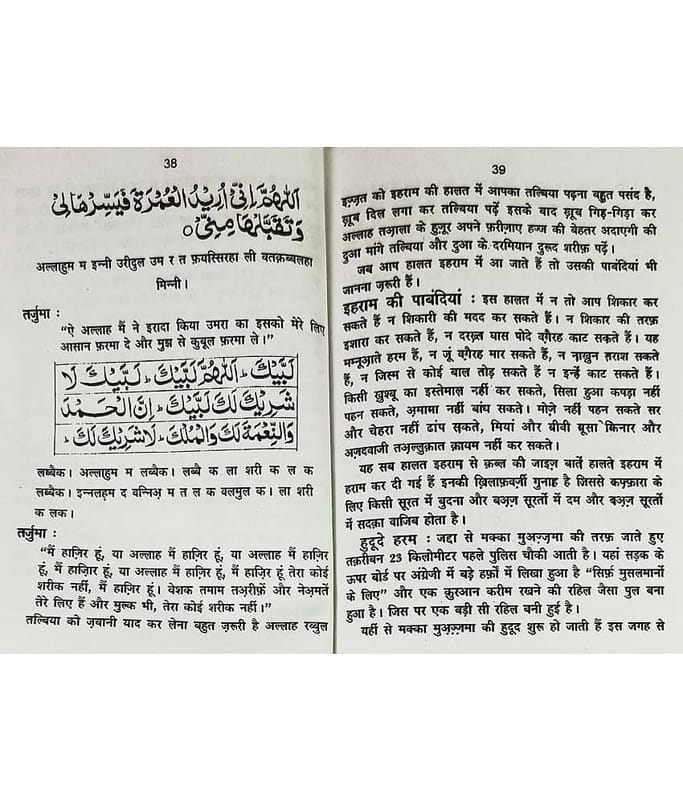 38
اَللّٰهُمَّ اِنِّیْ اُرِیْدُ الْعُمْرَةَ فَیَسِّرْهَا لِیْ
وَتَقَبَّلْهَا مِنِّیْ ○
अल्लाहुम म इन्नी उरीदुल उम र त फ़यस्सिरहा ली वतक़ब्बलहा
मिन्नी।
तर्जुमा :
“ऐ अल्लाह मैं ने इरादा किया उमरा का इसको मेरे लिए
आसान फ़रमा दे और मुझ से कुबूल फ़रमा ले।”
لَبَّیْكَ ۔ اَللّٰهُمَّ لَبَّیْكَ ۔ لَبَّیْكَ لَا
شَرِیْكَ لَكَ لَبَّیْكَ ۔ اِنَّ الْحَمْدَ
وَالنِّعْمَةَ لَكَ وَالْمُلْكَ ۔ لَا شَرِیْكَ لَكَ ۔
लब्बैक। अल्लाहुम म लब्बैक। लब्बै क ला शरी क ल क
लब्बैक। इन्नलहम द वन्निअ़ म त ल क वलमुल क। ला शरी
क लक।
तर्जुमा :
“मैं हाज़िर हूं, या अल्लाह मैं हाज़िर हूं, या अल्लाह मैं हाज़िर
हूं, मैं हाज़िर हूं, या अल्लाह मैं हाज़िर हूं, मैं हाज़िर हूं तेरा कोई
शरीक नहीं, मैं हाज़िर हूं। बेशक तमाम तअ़रीफ़ें और नेअ़मतें
तेरे लिए हैं और मुल्क भी, तेरा कोई शरीक नहीं।”
तल्बिया को ज़बानी याद कर लेना बहुत ज़रूरी है अल्लाह रब्बुल
39
इज़्ज़त को इहराम की हालत में आपका तल्बिया पढ़ना बहुत पसंद है,
ख़ूब दिल लगा कर तल्बिया पढ़ें इसके बाद ख़ूब गिड़-गिड़ा कर
अल्लाह तआ़ला के हुज़ूर अपने फ़रीज़ाए हज्ज की बेहतर अदाएगी की
दुआ मांगे तल्बिया और दुआ के दरमियान दुरूद शरीफ़ पढ़ें।
जब आप हालत इहराम में आ जाते हैं तो उसकी पाबंदियां भी
जानना ज़रूरी हैं।
इहराम की पाबंदियां : इस हालत में न तो आप शिकार कर
सकते हैं न शिकारी की मदद कर सकते हैं। न शिकार की तरफ़
इशारा कर सकते हैं, न दरख़्त घास पोदे वग़ैरह काट सकते हैं। यह
मम्नूआ़ते हरम हैं, न जूं वग़ैरह मार सकते हैं, न नाख़ुन तराश सकते
हैं, न जिस्म से कोई बाल तोड़ सकते हैं न इन्हें काट सकते हैं।
किसी ख़ुश्बू का इस्तेमाल नहीं कर सकते, सिला हुआ कपड़ा नहीं
पहन सकते, अ़मामा नहीं बांध सकते। मोज़े नहीं पहन सकते सर
और चेहरा नहीं ढांप सकते, मियां और बीवी बूसा किनार और
अज़दवाजी तअ़ल्लुक़ात क़ायम नहीं कर सकते।
यह सब हालत इहराम से क़ब्ल की जाइज़ बातें हालते इहराम में
हराम कर दी गई हैं इनकी ख़िलाफ़वर्ज़ी गुनाह है जिससे कफ़्फ़ारा के
लिए किसी सूरत में बुदना और बअ़ज़ सूरतों में दम और बअ़ज़ सूरतों
में सदक़ा वाजिब होता है।
हुदूदे हरम : जद्दा से मक्का मुअ़ज़्ज़मा की तरफ़ जाते हुए
तक़रीबन 23 किलोमीटर पहले पुलिस चौकी आती है। यहां सड़क के
ऊपर बोर्ड पर अंग्रेजी में बड़े हर्फ़ों में लिखा हुआ है “सिर्फ़ मुसलमानों
के लिए” और एक क़ुरआन करीम रखने की रहिल जैसा पुल बना
हुआ है। जिस पर एक बड़ी सी रहिल बनी हुई है।
यहीं से मक्का मुअ़ज़्ज़मा की हुदूद शुरू हो जाती हैं इस जगह से